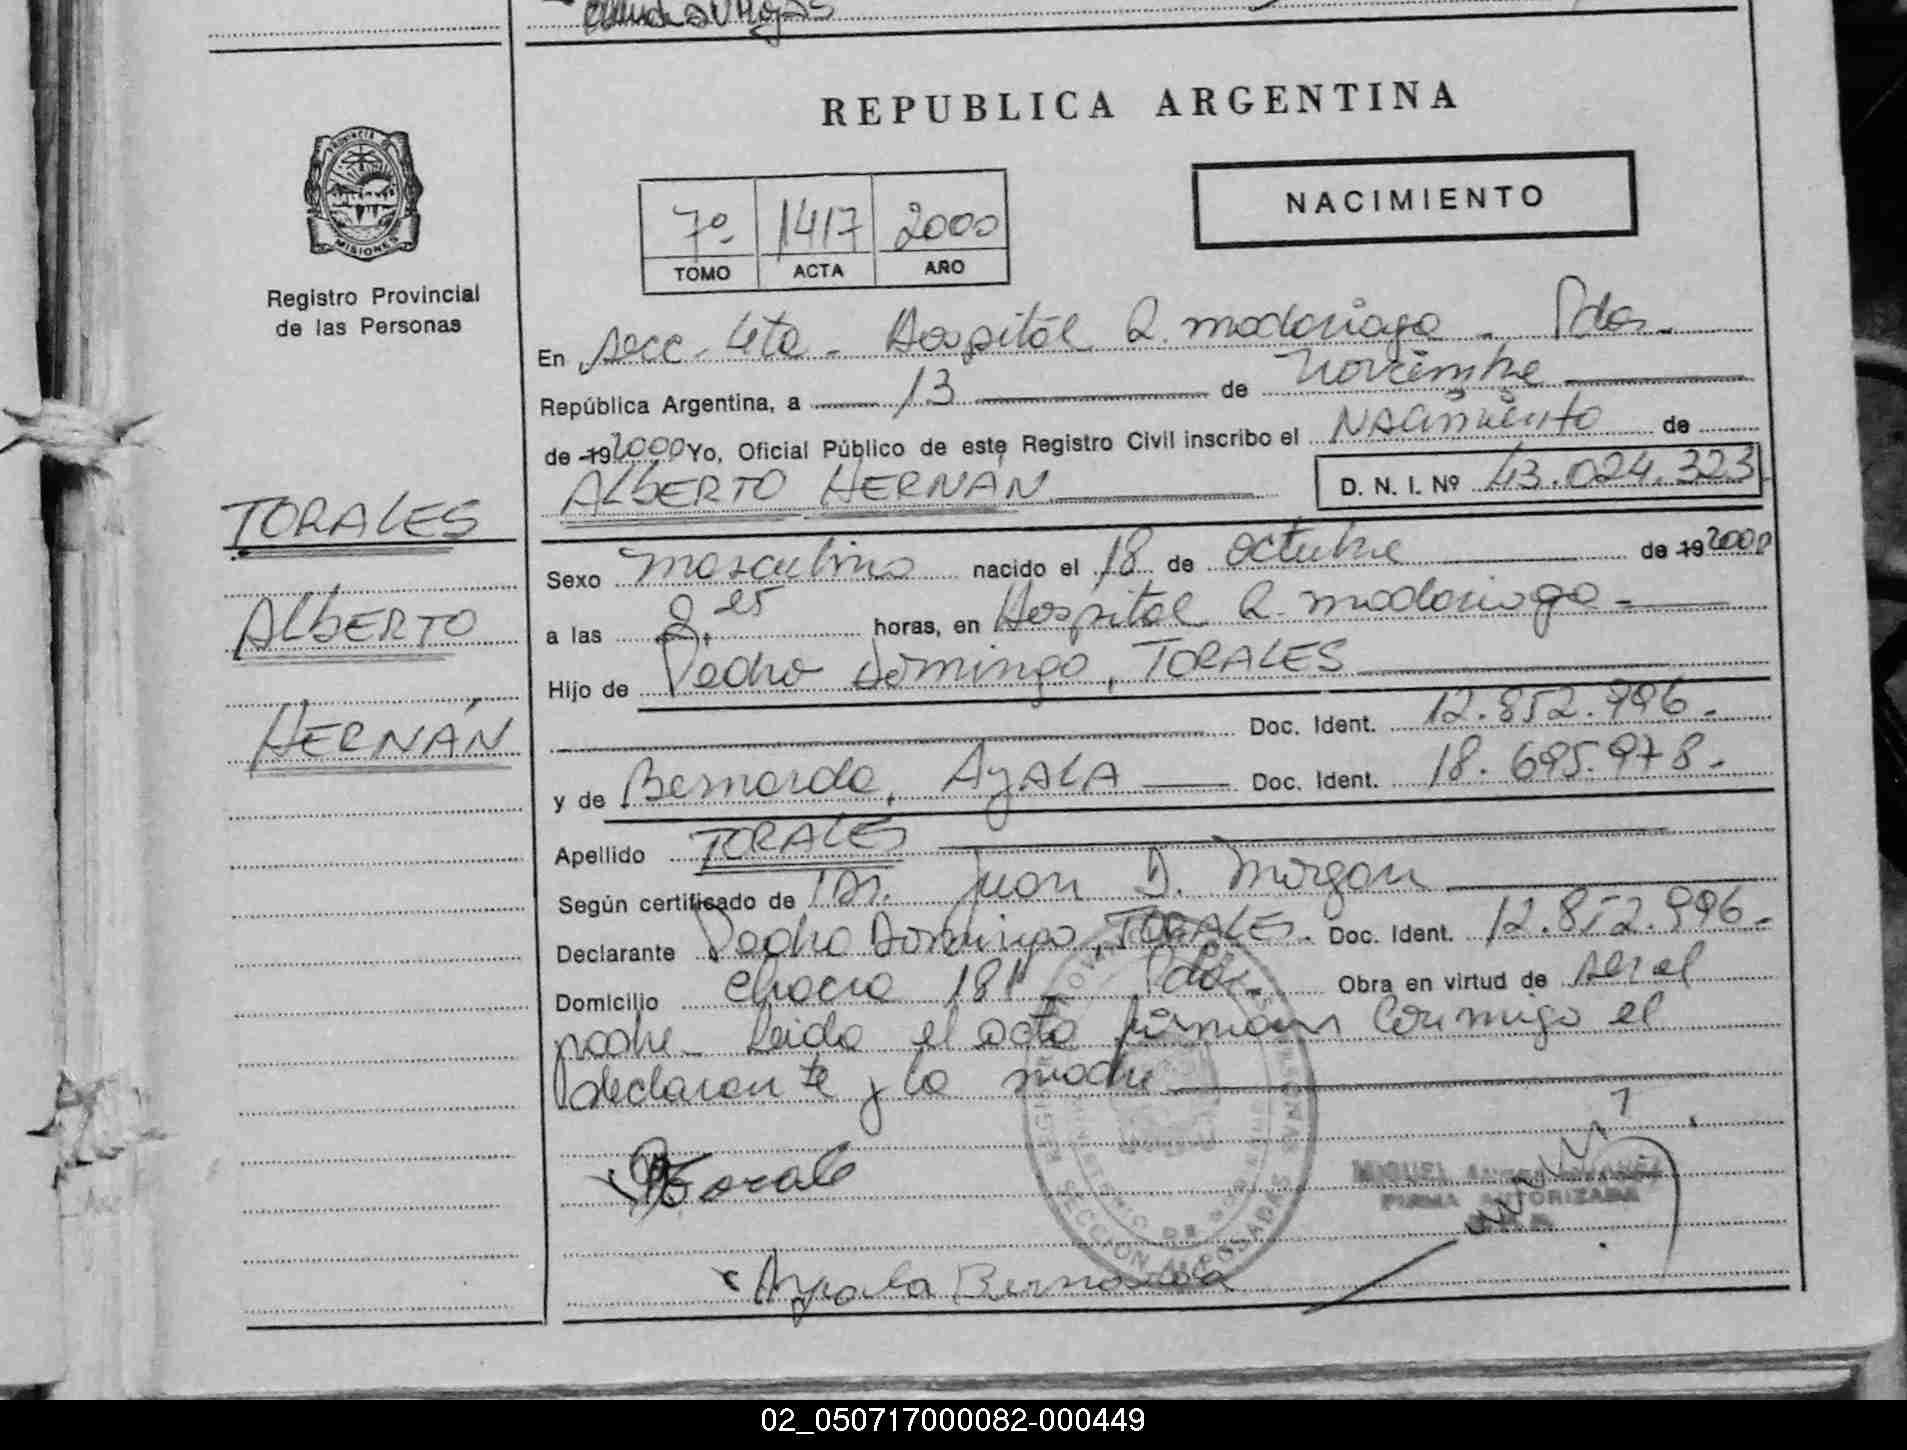 REPUBLICA ARGENTINA
PROVINCIA DE
MISIONES
Registro Provincial
de las Personas
7º 1417 2000
TOMO ACTA AÑO
NACIMIENTO
En Secc. 4ta - Hospital R. Madariaga - Pdas.
República Argentina, a 13 de Noviembre
de 192000 Yo, Oficial Público de este Registro Civil inscribo el NACimiento de
ALBERTO HERNÁN
D. N. I. Nº 43.024.323
TORALES
ALBERTO
HERNÁN
Sexo masculino nacido el 18 de octubre de 192000
a las 2.25 horas, en Hospital R. Madariaga -
Hijo de Pedro Domingo, TORALES
Doc. Ident. 12.852.996.
y de Bernarda, AyALA Doc. Ident. 18.695.978.
Apellido TORALES
Según certificado de Dr. Juan D. Morgan
Declarante Pedro Domingo, TORALES. Doc. Ident. 12.852.996.
Domicilio chacra 181 - Pdas. Obra en virtud de ser el
padre - Leida el acta firman conmigo el
declarante y la madre
Torale
MIGUEL
FIRMA AUTORIZADA
SECCION 4ª POSADAS
Ayala Bernarda
02_050717000082-000449